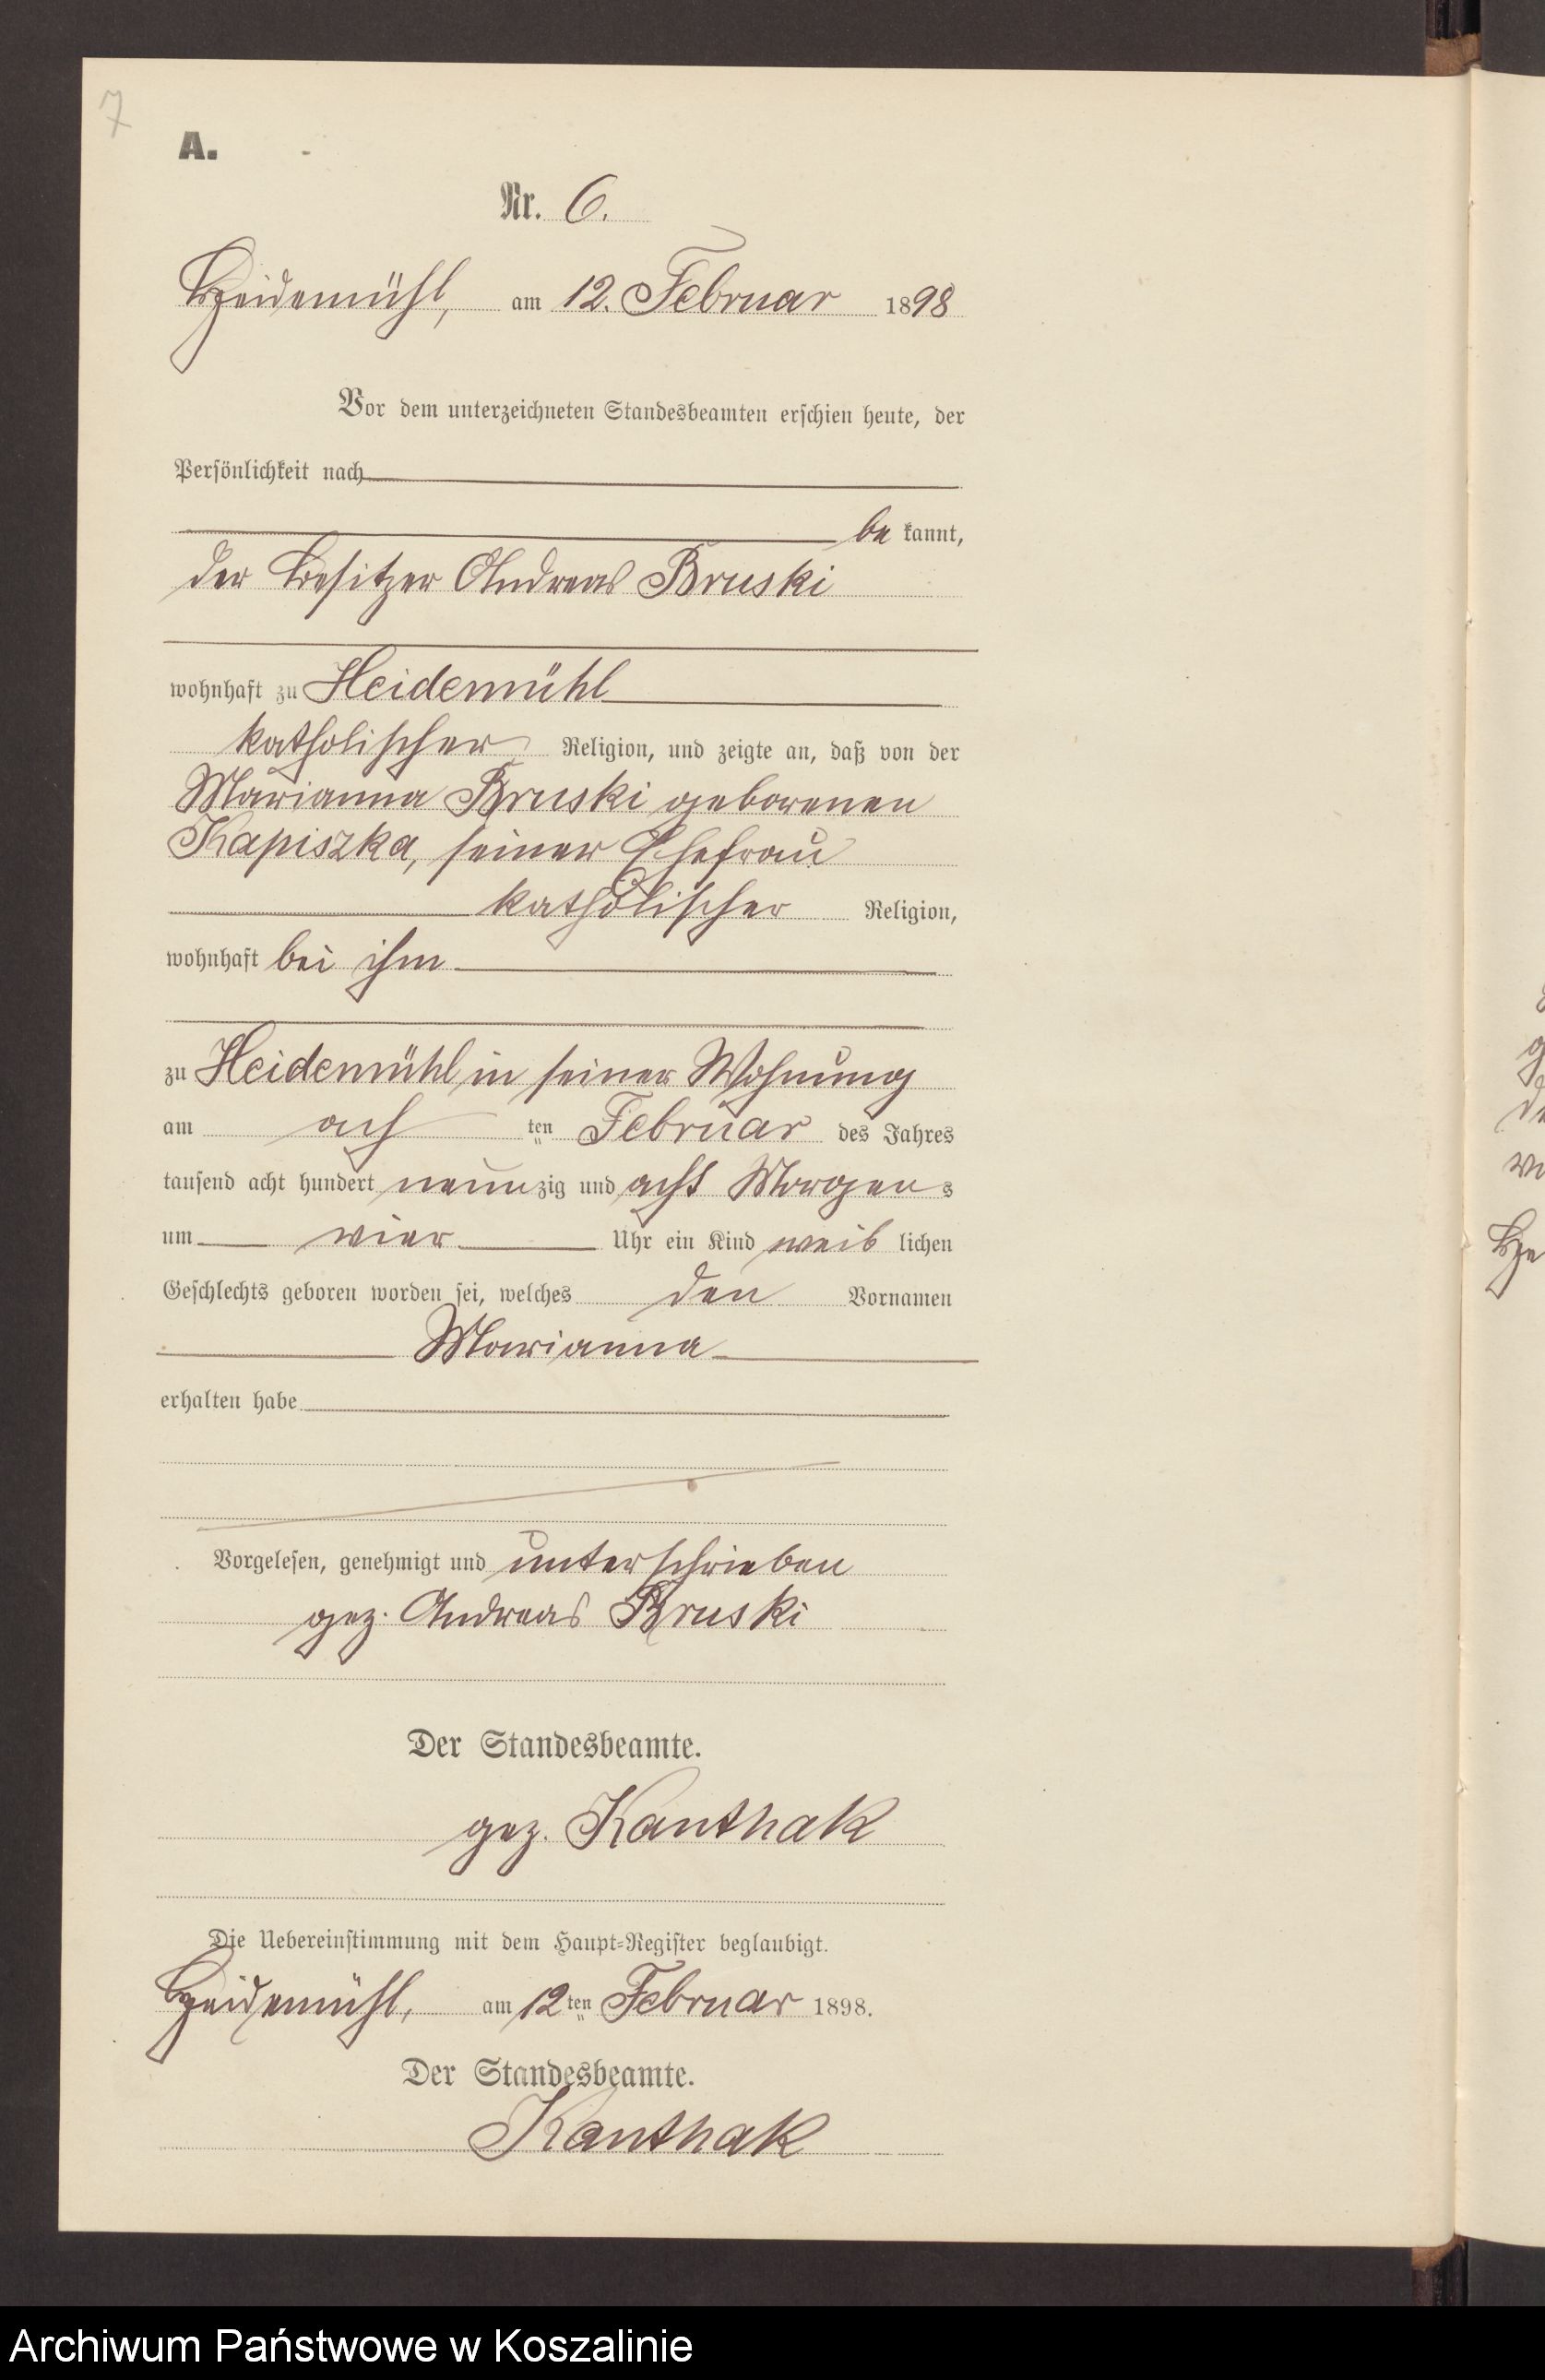 7
A.
Nr. 6.
Heidemühl, am 12. Februar 1898
Vor dem unterzeichneten Standesbeamten erschien heute, der
Persönlichkeit nach
be kannt,
der Besitzer Andreas Bruski
wohnhaft zu Heidemühl
katholischer Religion, und zeigte an, daß von der
Marianna Bruski geborenen
Kapiszka, seiner Ehefrau
katholischer Religion,
wohnhaft bei ihm
zu Heidemühl in seiner Wohnung
am ach ten Februar des Jahres
tausend acht hundert neunzig und acht Morgens
um vier Uhr ein Kind weib lichen
Geschlechts geboren worden sei, welches den Vornamen
Marianna
erhalten habe
Vorgelesen, genehmigt und unterschrieben
gez. Andreas Bruski
Der Standesbeamte.
gez. Kanthak
Die Uebereinstimmung mit dem Haupt-Register beglaubigt.
Heidemühl, am 12 ten Februar 1898.
Der Standesbeamte.
Kanthak
Archiwum Państwowe w Koszalinie